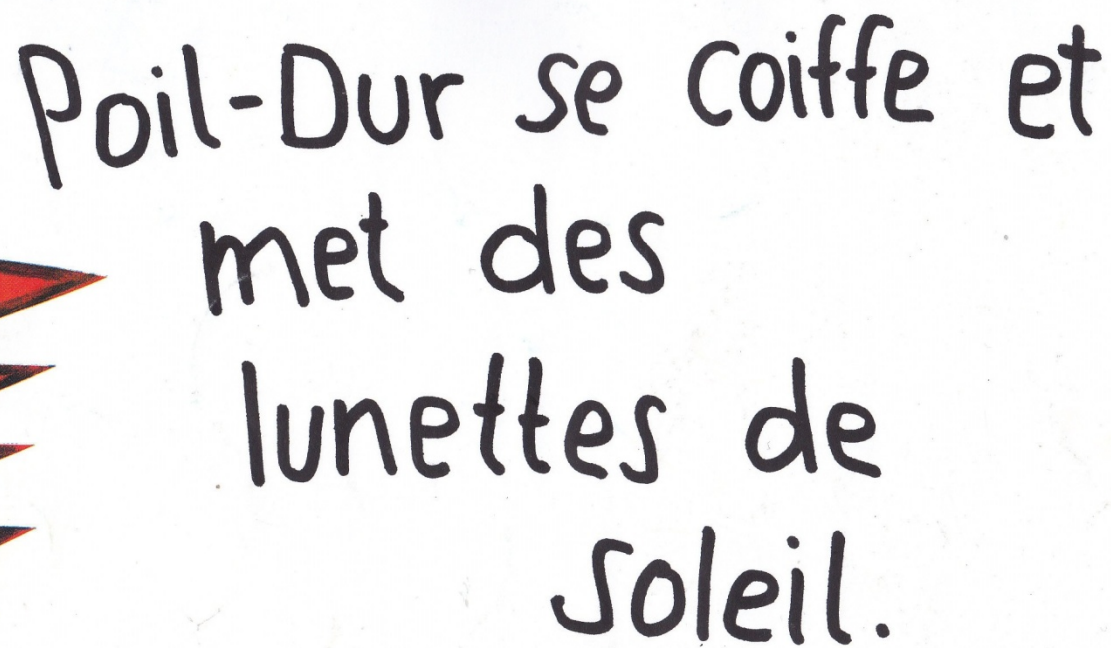 Poil-Dur se coiffe et
met des
lunettes de
soleil.